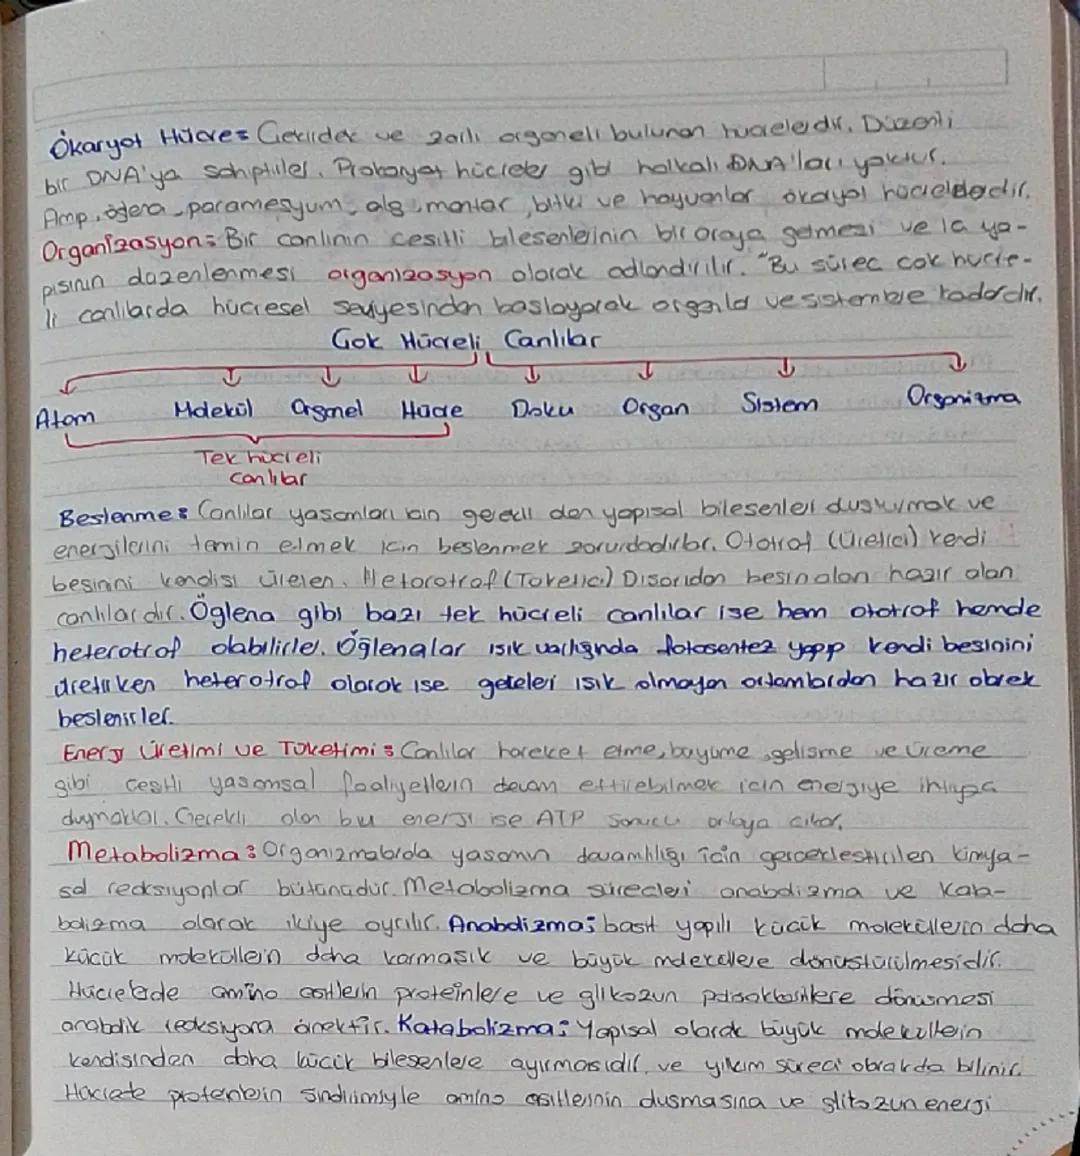 Ökaryot Hücre: Çekirdek ve zarlı organeli bulunan hücrelerdir. Düzenli
bir DNA'ya sahiptiler. Prokaryot hücreler gibi halkalı DNA'ları yoktur.
Amp, öglena, paramesyum, alg, mantar, bitki ve hayvanlar ökaryot hücrelerdir.
Organizasyon: Bir canlının çesitli bilesenlerinin bir araya gelmesi ve ya ya-
pısının düzenlenmesi organizasyon olarak adlandırılır. "Bu sürec cok hücre-
li canlılarda hücresel seviyesinden baslayarak organla ve sistemle kadardır.
Çok Hücreli Canlılar
Atom Molekül Organel Hücre Doku Organ Sistem Organizma
Tek hücreli
canlılar
Beslenme: Canlılar yasamları icin gerekli olan yapısal bilesenler ve
enerjilerini temin etmek icin beslenmek zorundadırlar. Ototrof (Üretici) kendi
besinini kendisi üreten. Hetorotrof (Tüketici) Disarıdan besin alan hazır alan
canlılardır. Öglena gibi bazı tek hücreli canlılar ise hem ototrof hemde
heterotrof olabilirler. Öğlenalar ısık varlıgında fotosentez yapıp kendi besinini
üretirken heterotrof olarak ise geceleri ısık olmayan ortamlardan hazır olarak
beslenirler.
Enerji Üretimi ve Tüketimi: Canlılar hareket etme, büyüme, gelisme ve üreme
gibi cesitli yasamsal faaliyetlerin devam ettirebilmek icin enerjiye ihtiyaç
duymaktal. Gerekli olan bu enerji ise ATP sonucu ortaya cıkar.
Metabolizma: Organizmalarda yasamın devamlılığı için gerceklestirilen kimya-
sal reaksiyonlar bütünüdür. Metabolizma sürecleri anabolizma ve kata-
bolizma olarak ikiye ayrılır. Anabolizma: basit yapılı kücük moleküllerin daha
kücük moleküllerin daha karmasık ve büyük moleküllere dönüstürülmesidir.
Hücrelerde amino asitlerin proteinlere ve glikozun polisakkaritlere dönüsmesi
anabolik reaksiyona örnektir. Katabolizma: Yapısal olarak büyük moleküllerin
kendisinden daha kücük bilesenlere ayırmasıdır, ve yıkım süreci olarakda bilinir.
Hücrede proteinlerin sindirimiyle amino asitlerinin dusmasına ve glikozun enerji